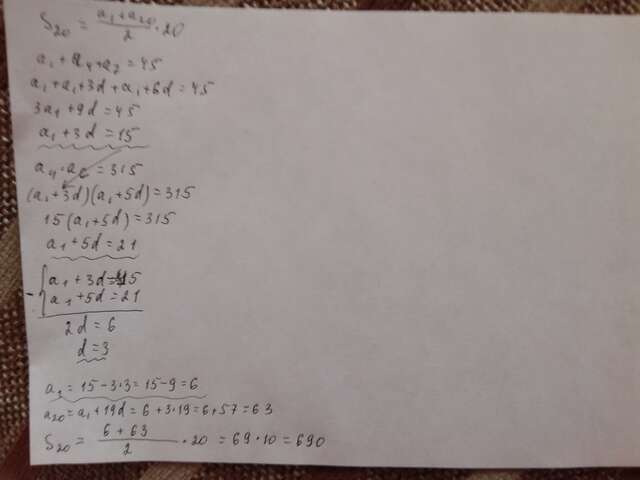 S₂₀ = (a₁ + a₂₀)/2 · 20
a₁ + a₄ + a₇ = 45
a₁ + a₁ + 3d + a₁ + 6d = 45
3a₁ + 9d = 45
a₁ + 3d = 15
a₄ · a₆ = 315
(a₁ + 3d)(a₁ + 5d) = 315
15(a₁ + 5d) = 315
a₁ + 5d = 21
a₁ + 3d = 15
- { a₁ + 5d = 21
2d = 6
d = 3
a₁ = 15 - 3·3 = 15 - 9 = 6
a₂₀ = a₁ + 19d = 6 + 3·19 = 6 + 57 = 63
S₂₀ = (6 + 63)/2 · 20 = 69 · 10 = 690